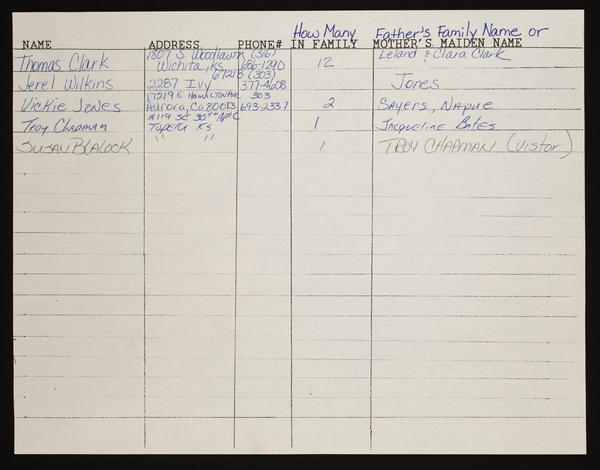 How Many Father's Family Name or
NAME ADDRESS PHONE# IN FAMILY MOTHER'S MAIDEN NAME
Thomas Clark 1807 S. Woodlawn (316) 12 Leland & Clara Clark
Wichita, Ks 686-1290
67218 (303)
Jerel Wilkins 2287 Ivy 377-4608 Jones
17219 E Hamilton Ave 303
Vickie Jones Aurora, Co. 80013 693-2337 2 Sayers, Napue
2119 SE 30th Apt C
Troy Chapman Topeka Ks 1 Jacqueline Bates
Susan Blalock " " 1 Troy Chapman (Vistor)